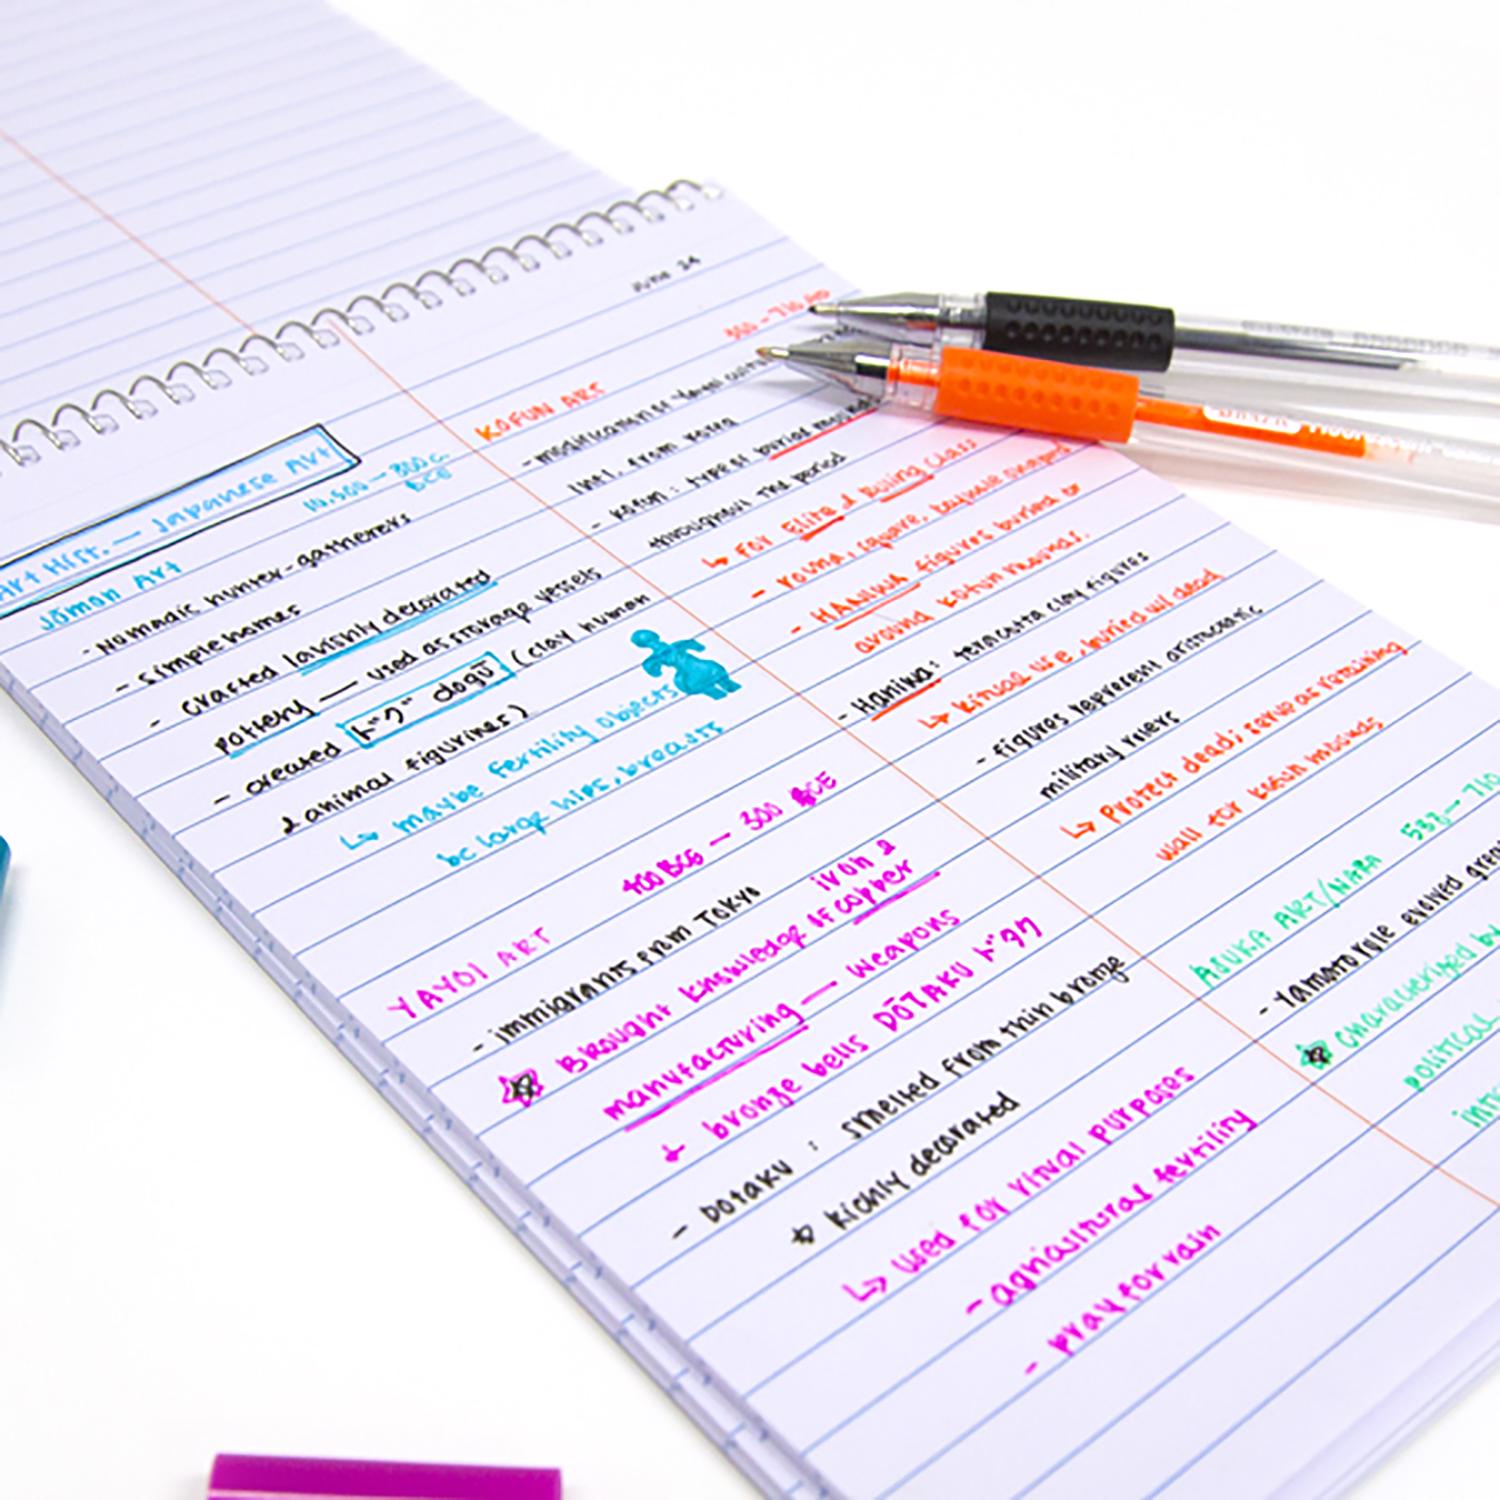 June 24
Art Hist. — Japanese Art
Jōman Art 10,500 — 300c.
BCE
- Nomadic hunter-gatherers
- simple homes
- crafted lavishly decorated
pottery — used as storage vessels
- created ドグ dogū (clay human
& animal figurines)
↳ maybe fertility objects
bc large hips, breasts
400 BCE — 300 BCE
YAYOI ART
- immigrants from Tokyo
iron &
☆ Brought knowledge of copper
manufacturing — weapons
& bronze bells DŌTAKU ドタク
- Dotaku : smelted from thin bronze
☆ Richly decorated
↳ used for ritual purposes
- agricultural fertility
- pray for rain
300 - 710 AD
KOFUN ART
- modification of Yayoi
infl. from Korea
- Kofun : type of burial
throughout the period
↳ For Elite & Ruling Class
- round, square, keyhole shaped
- HANIWA figures buried or
around kofun mounds.
- Haniwa : teracotta clay figures
↳ Ritual use, buried w/ dead
- figures represent aristocratic
military rulers
↳ Protect dead; serve as retaining
wall for keach mounds
ASUKA ART/NARA 552 — 710
- Yamato rule evolved
☆ Characterized by
political